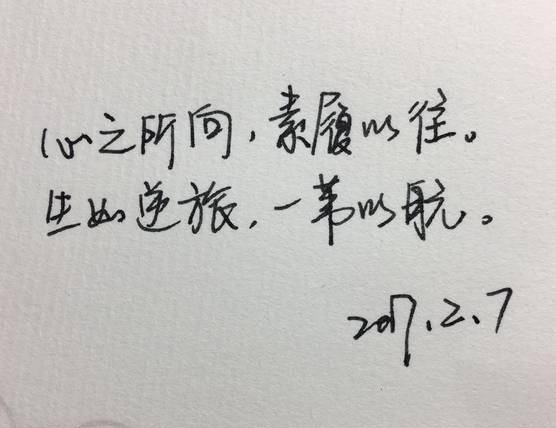 心之所向，素履以往。
生如逆旅，一苇以航。
2017.2.7